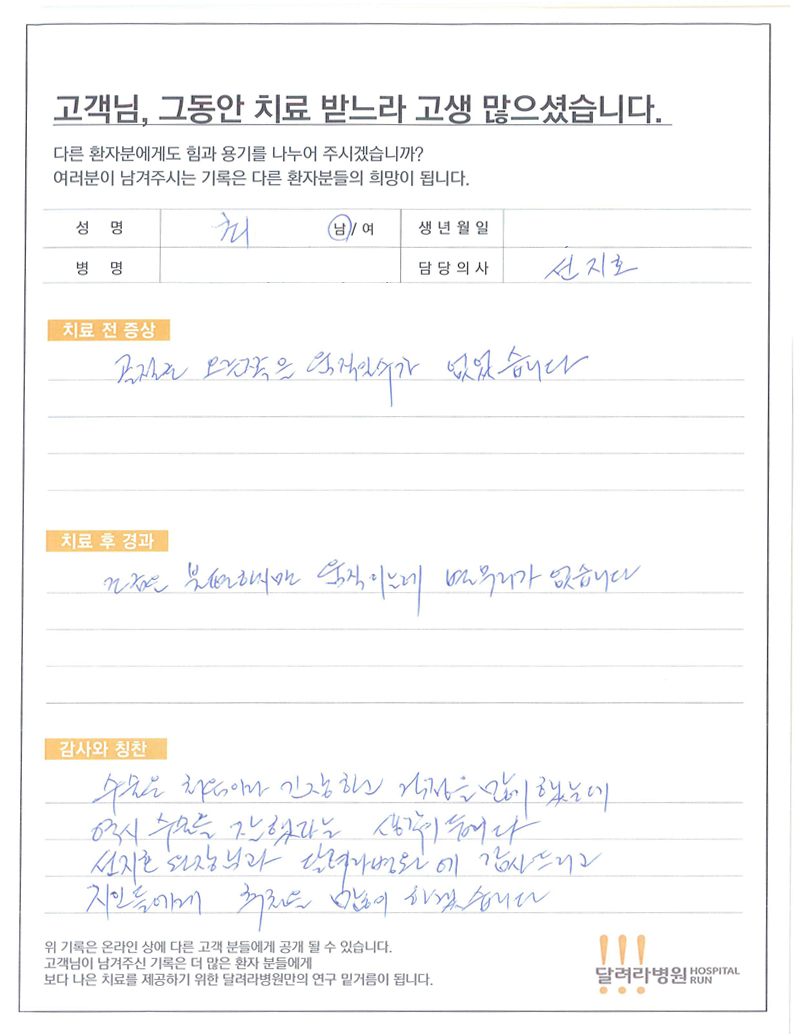 고객님, 그동안 치료 받느라 고생 많으셨습니다.
다른 환자분에게도 힘과 용기를 나누어 주시겠습니까?
여러분이 남겨주시는 기록은 다른 환자분들의 희망이 됩니다.
성 명 최 남/여 생년월일
병 명 담당의사 선지호
치료 전 증상
골절로 오른쪽은 움직일수가 없었습니다
치료 후 경과
조금은 불편하지만 움직이는데 별무리가 없습니다
감사와 칭찬
수술은 처음이라 긴장하고 걱정을 많이 했는데
역시 수술을 잘했다는 생각이 듭니다
선지호 원장님과 달려라병원에 감사드리고
지인들에게 추천을 많이 하겠습니다
위 기록은 온라인 상에 다른 고객 분들에게 공개 될 수 있습니다.
고객님이 남겨주신 기록은 더 많은 환자 분들에게
보다 나은 치료를 제공하기 위한 달려라병원만의 연구 밑거름이 됩니다.
달려라병원 HOSPITAL RUN